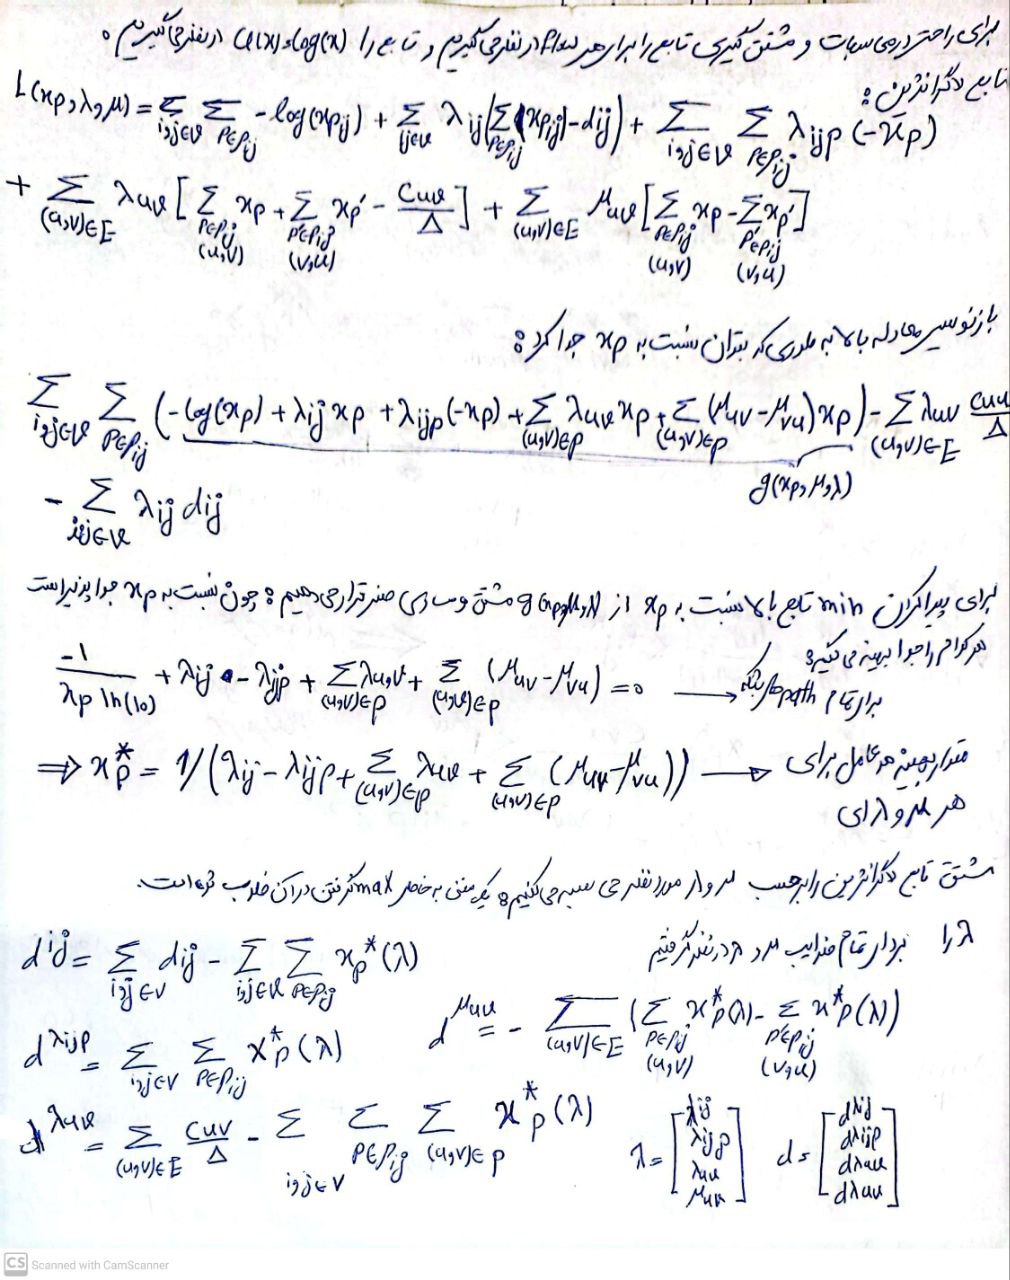 برای راحتی در محاسبات و مشتق گیری تابع را برابر هر در نظر می گیریم و تابع را U(x)=log(x) در نظر می گیریم.
تابع لاگرانژین:
L(xp,λ,μ) = Σ_{i,j∈v} Σ_{p∈Pij} -log(xpij) + Σ_{ij∈v} λij(Σ_{p∈Pij}(xpij)-dij) + Σ_{i,j∈v} Σ_{p∈Pij} λijp(-xp)
+ Σ_{(u,v)∈E} λuv[Σ_{p∈Pij (u,v)} xp + Σ_{p'∈Pij (v,u)} xp' - Cuv/Δ] + Σ_{(u,v)∈E} μuv[Σ_{p∈Pij (u,v)} xp - Σ_{p'∈Pij (v,u)} xp']
بازنویسی معادله بالا به طوری که بتوان نسبت به xp جدا کرد:
Σ_{i,j∈v} Σ_{p∈Pij} (-log(xp) + λij xp + λijp(-xp) + Σ_{(u,v)∈p} λuv xp + Σ_{(u,v)∈p} (μuv-μvu)xp) - Σ_{(u,v)∈E} λuv Cuv/Δ
g(xp,μ,λ)
- Σ_{i,j∈v} λij dij
برای پیدا کردن min تابع بالا نسبت به xp از g(xp,μ,λ) مشتق و مساوی صفر قرار می دهیم: چون نسبت به xp جداپذیر است
هر کدام را جدا بهینه می کنیم:
-1/(xp ln(10)) + λij - λijp + Σ_{(u,v)∈p} λu,v + Σ_{(u,v)∈p} (μuv-μvu) = 0 ⟶ برای تمام path های شبکه
⇒ x*p = 1/(λij - λijp + Σ_{(u,v)∈p} λuv + Σ_{(u,v)∈p} (μuv-μvu)) ⟶ مقدار بهینه هر عامل برای
هر μ و λ ای
مشتق تابع لاگرانژین را برحسب μ و λ مورد نظر محاسبه می کنیم: یک منفی به خاطر max گرفتن در آن ضرب شده است.
λ را بردار تمام ضرایب μ و λ در نظر گرفتیم
d^{ij} = Σ_{i,j∈v} dij - Σ_{i,j∈v} Σ_{p∈Pij} x*p(λ)
d^{μuv} = - Σ_{(u,v)∈E} (Σ_{p∈Pij (u,v)} x*p(λ) - Σ_{p'∈Pij (v,u)} x*p(λ))
d^{λijp} = Σ_{i,j∈v} Σ_{p∈Pij} x*p(λ)
d^{λuv} = Σ_{(u,v)∈E} Cuv/Δ - Σ_{i,j∈v} Σ_{p∈Pij} Σ_{(u,v)∈p} x*p(λ)
λ = [λij λijp λuv μuv] d = [dλij dλijp dλuv dλuv]
CS Scanned with CamScanner